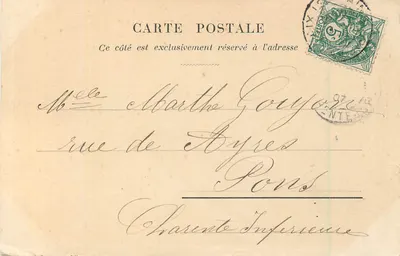 CARTE POSTALE
Ce côté est exclusivement réservé à l'adresse
5
Melle Marthe
rue de Ayres
Pons
Charente Inférieure